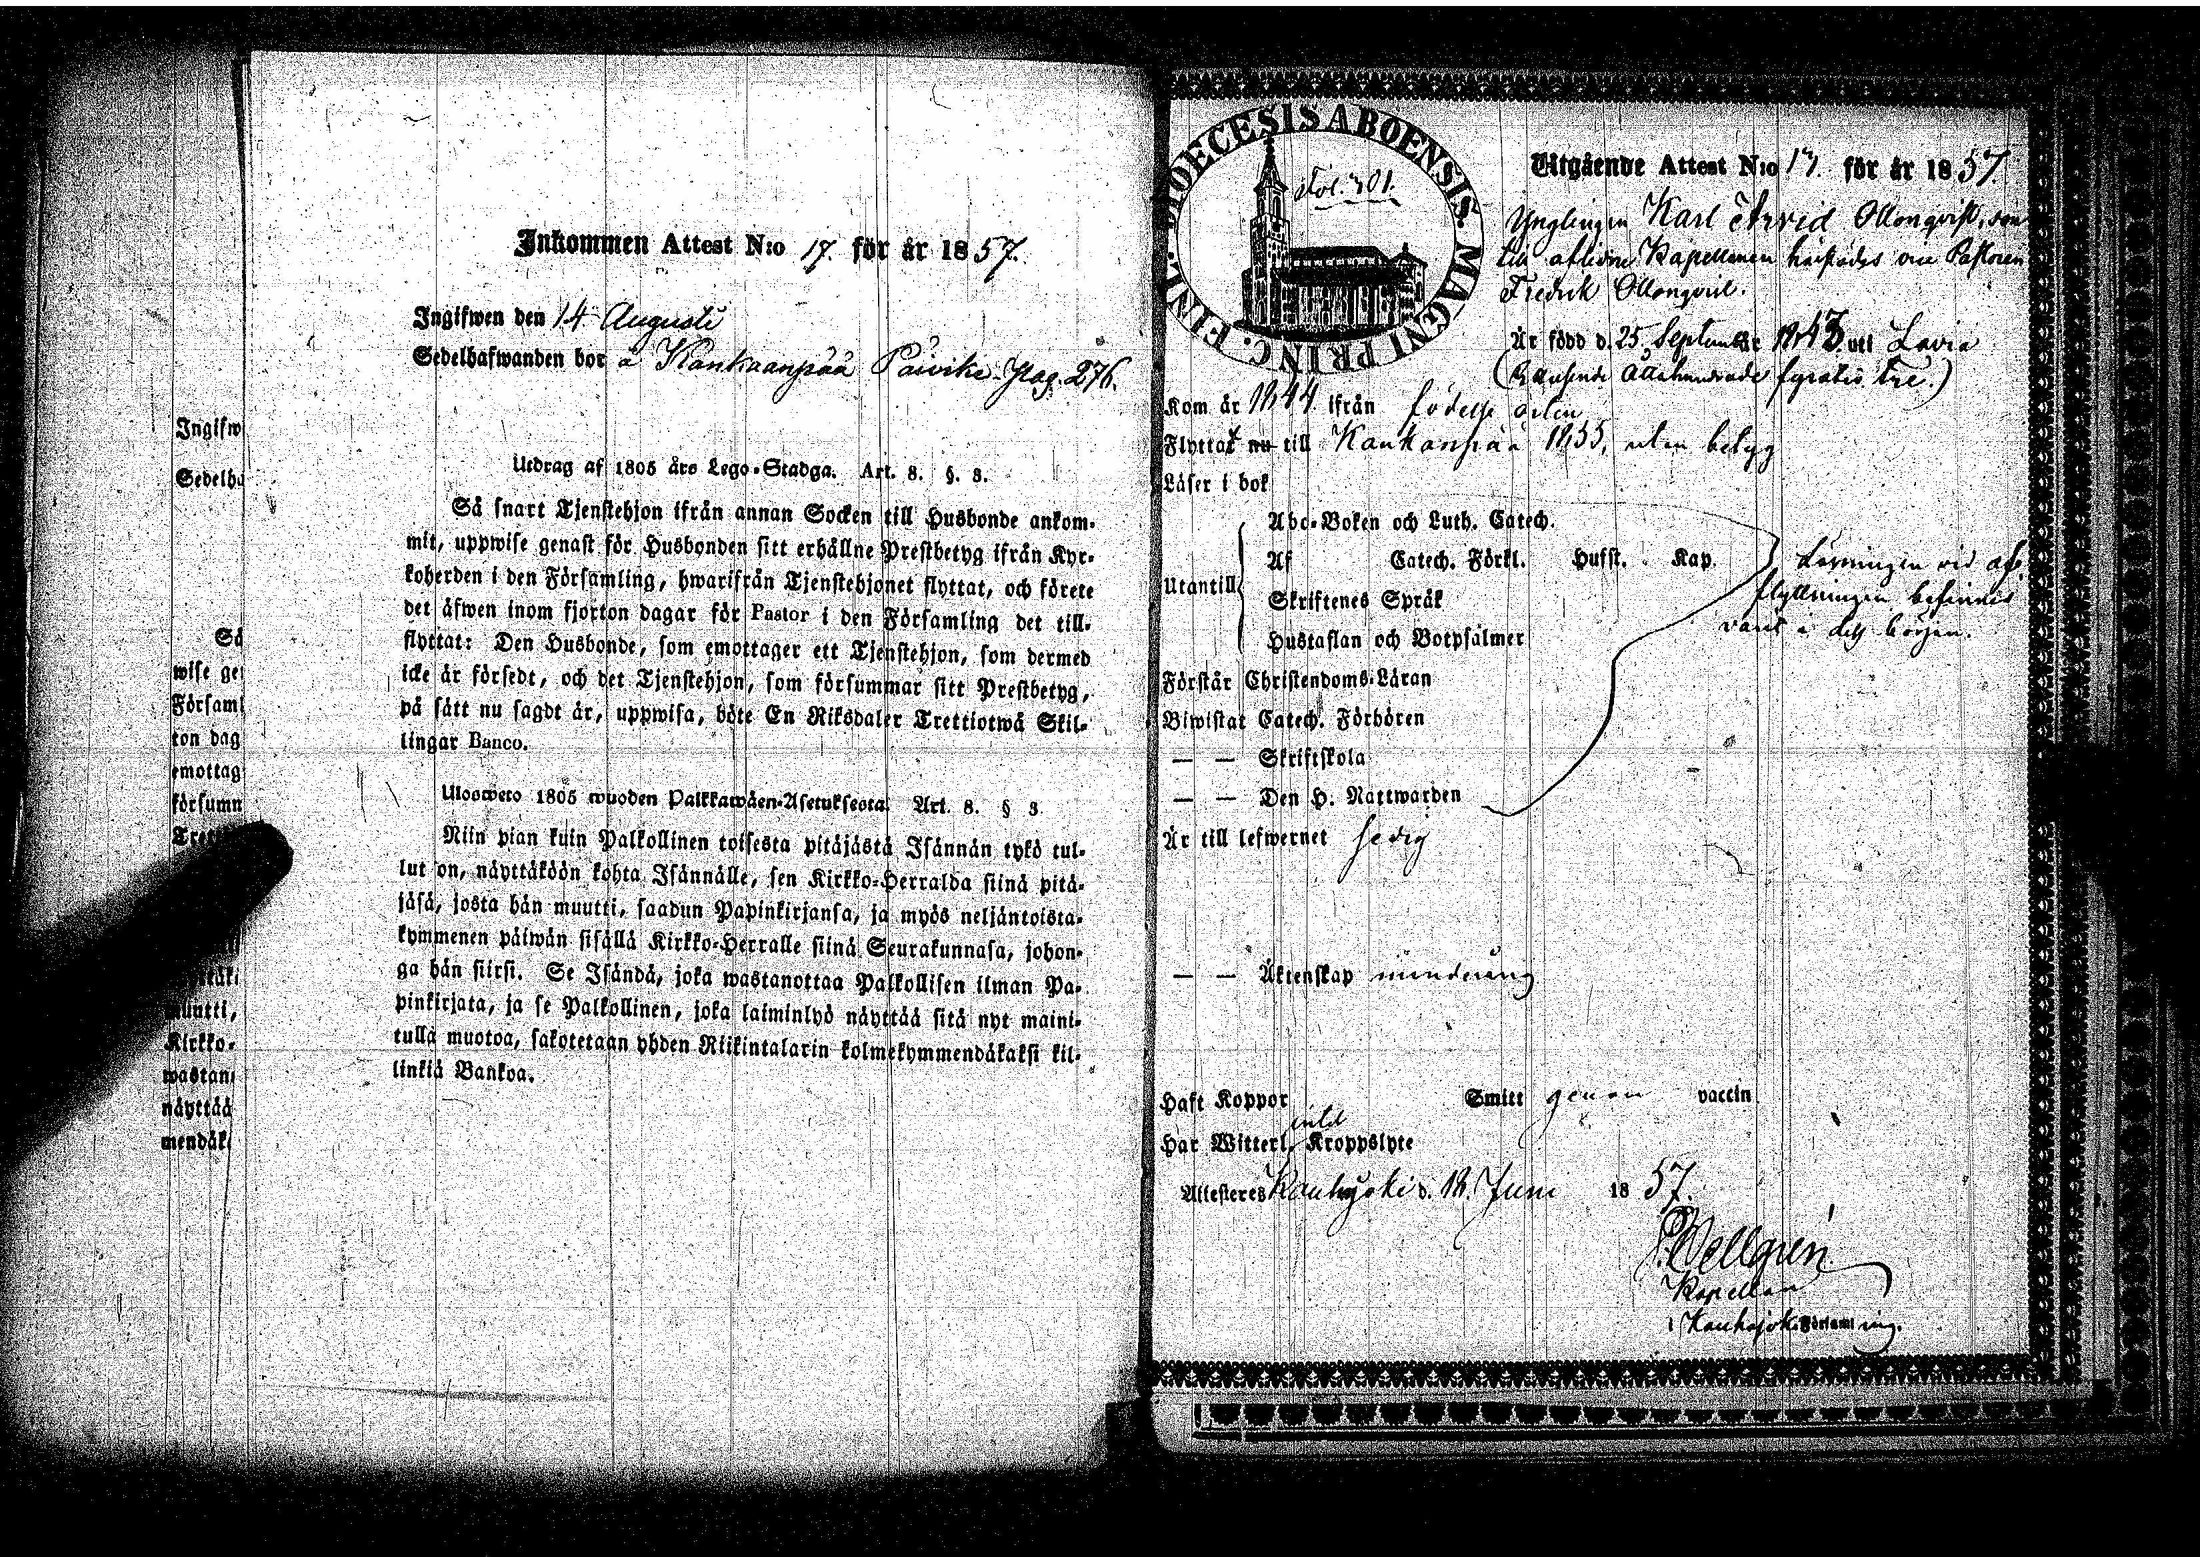 Inkommen Attest N:o 17. för år 1857.
Ingifwen den 14 Augusti
Sedelhafwanden bor å Kankaanpää Päivike Pag. 276.
Utdrag af 1805 års Lego-Stadga. Art. 8. §. 3.
Så snart Tjenstehjon ifrån annan Socken till Husbonde ankom-
mit, uppwise genast för Husbonden sitt erhållne Prestbetyg ifrån Kyr-
koherden i den Församling, hwarifrån Tjenstehjonet flyttat, och förete
det äfwen inom fjorton dagar för Pastor i den Församling det till-
flyttat: Den Husbonde, som emottager ett Tjenstehjon, som dermed
icke är försedt, och det Tjenstehjon, som försummar sitt Prestbetyg,
på sätt nu sagdt är, uppwisa, böte En Riksdaler Trettiotwå Skil-
lingar Banco.
Ulosweto 1805 wuoden Palkkawäen-Asetuksesta. Art. 8. § 3
Niin pian kuin Palkollinen toisesta pitäjästä Isännän tykö tul-
lut on, näyttäköön kohta Isännälle, sen Kirkko-Herralda siinä pitä-
jäsä, josta hän muutti, saadun Papinkirjansa, ja myös neljäntoista-
kymmenen päiwän sisällä Kirkko-Herralle siinä Seurakunnasa, johon-
ga hän siirsi. Se Isändä, joka wastanottaa Palkollisen ilman Pa-
pinkirjata, ja se Palkollinen, joka laiminlyö näyttää sitä nyt maini-
tulla muotoa, sakotetaan yhden Riikintalarin kolmekymmendäkaksi kil-
linkiä Bankoa.
Ingifw
Sedelha
Så
wise ge
Församl
ton dag
emottag
försumn
muutti,
Kirkko-
wastan
näyttää
mendäk
DIOECESIS ABOENSIS. MAGNI PRINC. FINL.
Fol. 301.
Utgående Attest N:o 17. för år 1857.
Ynglingen Karl Arvid Ollonqvist, son
till aflidne Kapellanen härstädes vice Pastoren
Fredrik Ollonqvist.
Är född d. 25 September 1843 uti Lavia
(Ettusende Åttahundrade fyratio tre.)
Kom år 1844 ifrån födelse orten
Flyttat nu till Kankanpää 1855, utan betyg
Läser i bok
Utantill
Abc-Boken och Luth. Catech.
Af Catech. Förkl. Hufst. Kap.
Skriftenes Språk
Hustaflan och Botpsalmer
Läsningen vid af-
flyttningen befinnes
varit i dess början.
Förstår Christendoms-Läran
Biwistat Catech. Förhören
— — Skriftskola
— — Den H. Nattwarden
Är till lefwernet sedig
— — Äktenskap minderårig
Haft Koppor Smitt genom vaccin
Har Witterl. Kroppslyte
Attesteres Kauhajoki d. 18. Juni 1857.
Wellgren
Kapellan
i Kauhajoki Församling.